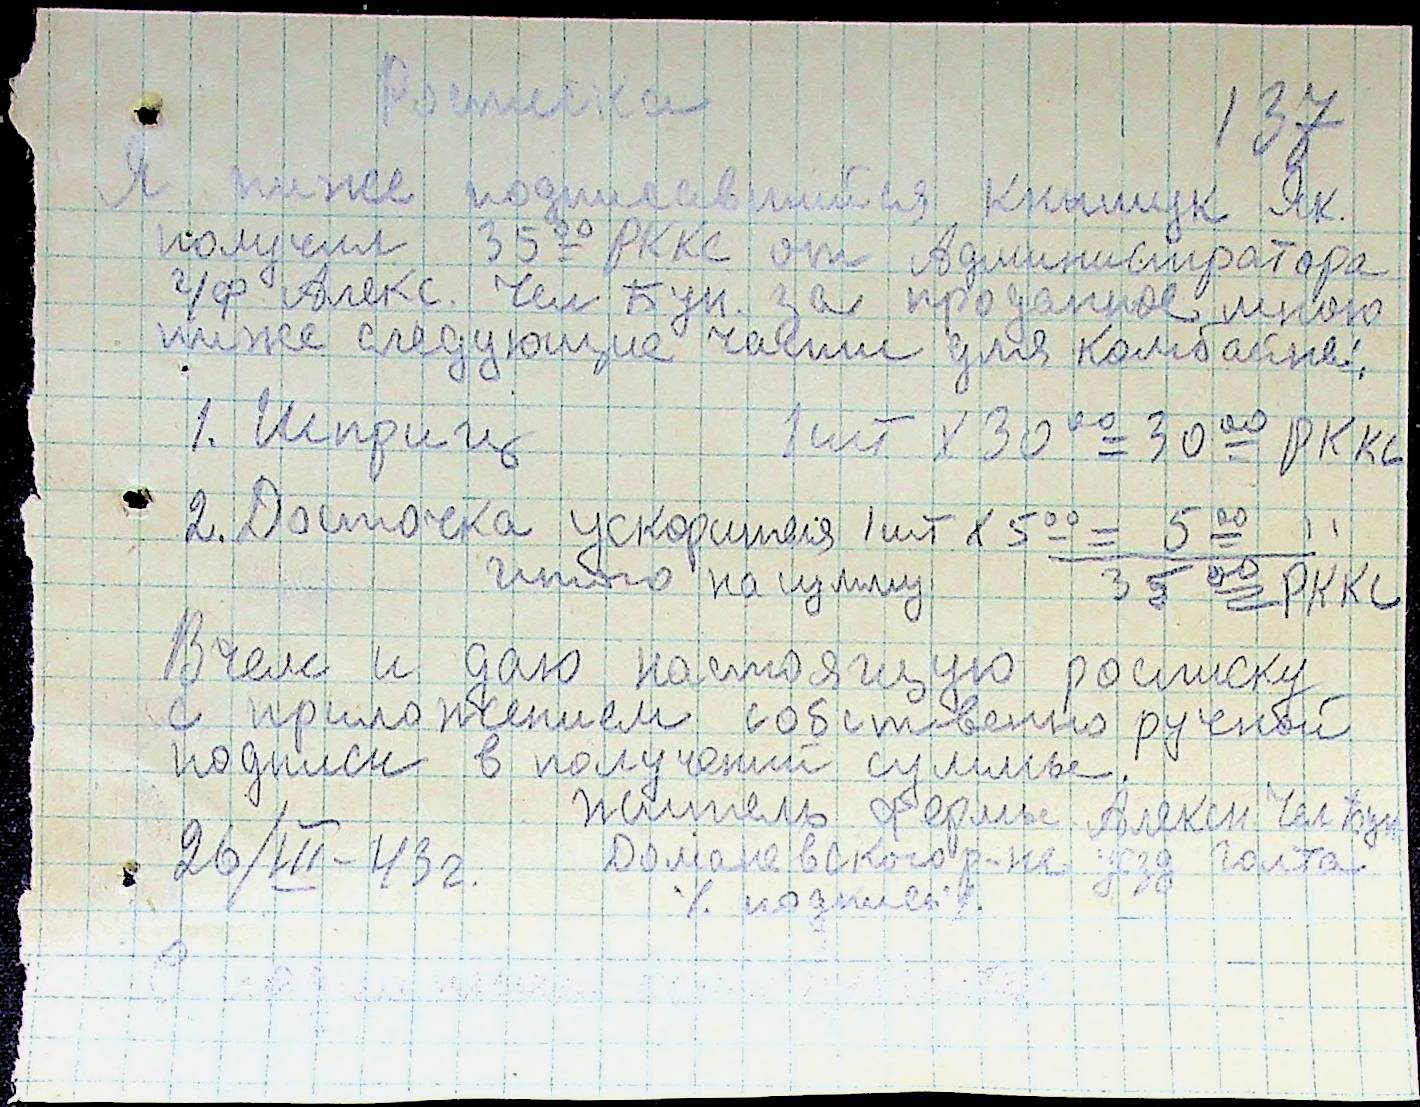 Росписка
137
Я ниже подписавшийся Кнышук Як.
получил 35 00 РККС от Администратора
г/ф. Алекс. Чел Бун. за проданное мною
ниже следующие части для комбайна:
1. Шприц 1 шт х 30 00 = 30 00 РККС
2. Досточка ускорителя 1 шт х 5 00 = 5 00 "
итого на сумму 35 00 РККС
В чем и даю настоящую росписку
с приложением собственно ручной
подписи в получений суммы.
житель фермы Алексан Чел Бун
26/III-43 г. Доманевского р-на уезд Голта
٪ подпись ٪